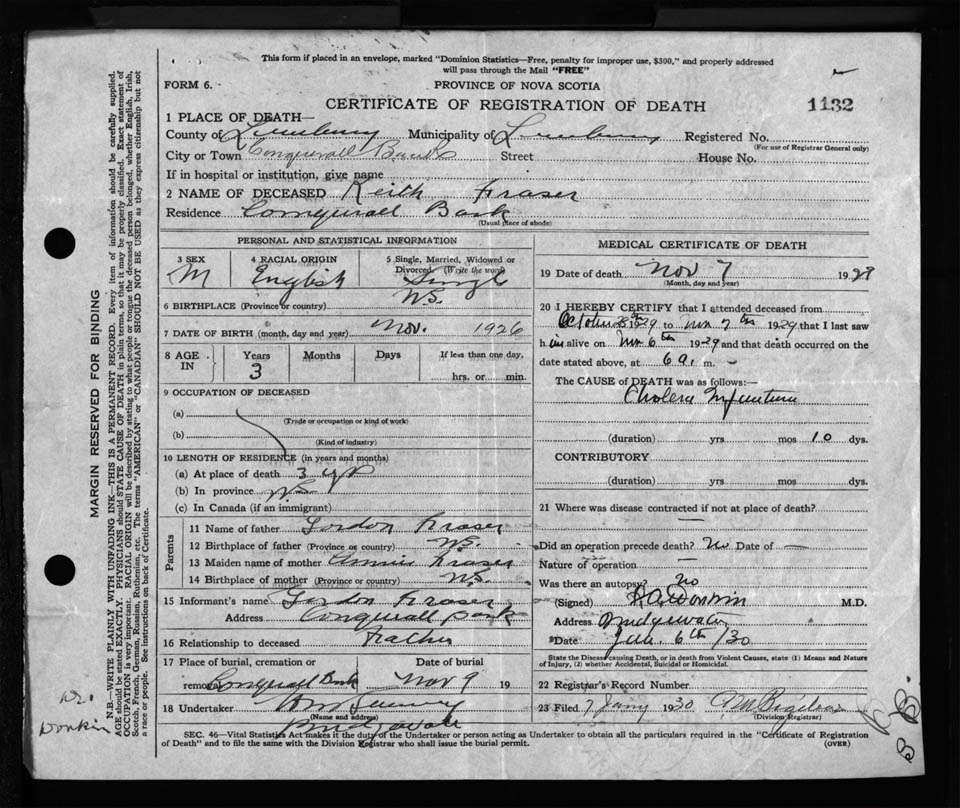 This form if placed in an envelope, marked "Dominion Statistics—Free, penalty for improper use, $300," and properly addressed
will pass through the Mail "FREE"
FORM 6. PROVINCE OF NOVA SCOTIA
CERTIFICATE OF REGISTRATION OF DEATH 1132
1 PLACE OF DEATH—
County of Lunenburg Municipality of Lunenburg Registered No.
(For use of Registrar General only)
City or Town Conquerall Bank Street House No.
If in hospital or institution, give name
2 NAME OF DECEASED Keith Fraser
Residence Conquerall Bank
(Usual place of abode)
PERSONAL AND STATISTICAL INFORMATION
3 SEX 4 RACIAL ORIGIN 5 Single, Married, Widowed or
Divorced (Write the word)
M English Single
6 BIRTHPLACE (Province or country) N.S.
7 DATE OF BIRTH (month, day and year) Nov. 1926
8 AGE IN Years Months Days If less than one day,
3 hrs. or min.
9 OCCUPATION OF DECEASED
(a)
(Trade or occupation or kind of work)
(b)
(Kind of industry)
10 LENGTH OF RESIDENCE (in years and months)
(a) At place of death 3 yrs
(b) In province N.S.
(c) In Canada (if an immigrant)
Parents
11 Name of father Gordon Fraser
12 Birthplace of father (Province or country) N.S.
13 Maiden name of mother Annie Fraser
14 Birthplace of mother (Province or country) N.S.
15 Informant's name Gordon Fraser
Address Conquerall Bank
16 Relationship to deceased Father
17 Place of burial, cremation or Date of burial
removal Conquerall Bank Nov 9 19
18 Undertaker
(Name and address)
MEDICAL CERTIFICATE OF DEATH
19 Date of death Nov 7 1929
(Month, day and year)
20 I HEREBY CERTIFY that I attended deceased from
October 28th 1929 to Nov 7th 1929 that I last saw
him alive on Nov 6th 1929 and that death occurred on the
date stated above, at 6 a. m.
The CAUSE of DEATH was as follows:—
Cholera Infantum
(duration) yrs mos 10 dys.
CONTRIBUTORY
(duration) yrs. mos dys.
21 Where was disease contracted if not at place of death?
—
Did an operation precede death? No Date of —
Nature of operation —
Was there an autopsy? No
(Signed) Donkin M.D.
Address Bridgewater
Date Jan. 6th /30
State the Disease causing Death, or in death from Violent Causes, state (1) Means and Nature
of Injury, (2) whether Accidental, Suicidal or Homicidal.
22 Registrar's Record Number
23 Filed 7 Jany 1930
(Division Registrar)
SEC. 46—Vital Statistics Act makes it the duty of the Undertaker or person acting as Undertaker to obtain all the particulars required in the "Certificate of Registration
of Death" and to file the same with the Division Registrar who shall issue the burial permit. (OVER)
MARGIN RESERVED FOR BINDING
N.B.—WRITE PLAINLY WITH UNFADING INK—THIS IS A PERMANENT RECORD. Every item of information should be carefully supplied.
AGE should be stated EXACTLY. PHYSICIANS should STATE CAUSE OF DEATH in plain terms, so that it may be properly classified. Exact statement of
OCCUPATION is very important. RACIAL ORIGIN will be described by stating to what people or tongue the deceased person belonged, whether English, Irish,
Scotch, French, German, Russian, Ruthenian, etc. The terms "AMERICAN" or "CANADIAN" SHOULD NOT BE USED as they express citizenship but not
a race or people. See instructions on back of Certificate.
Dr.
Donkin